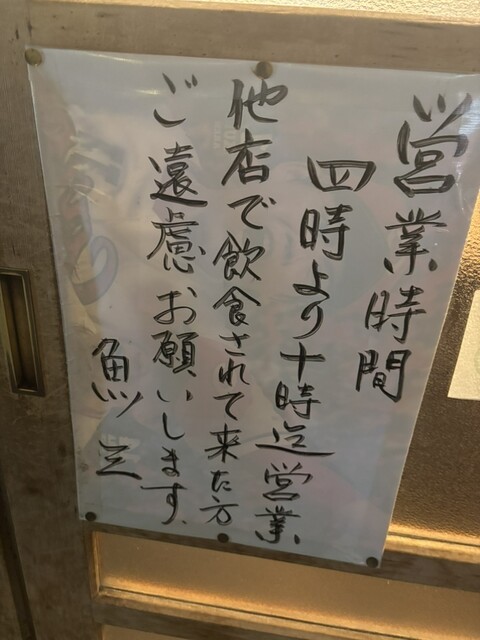 営業時間
四時より十時迄営業
他店で飲食されて来た方
ご遠慮お願いします。
魚三